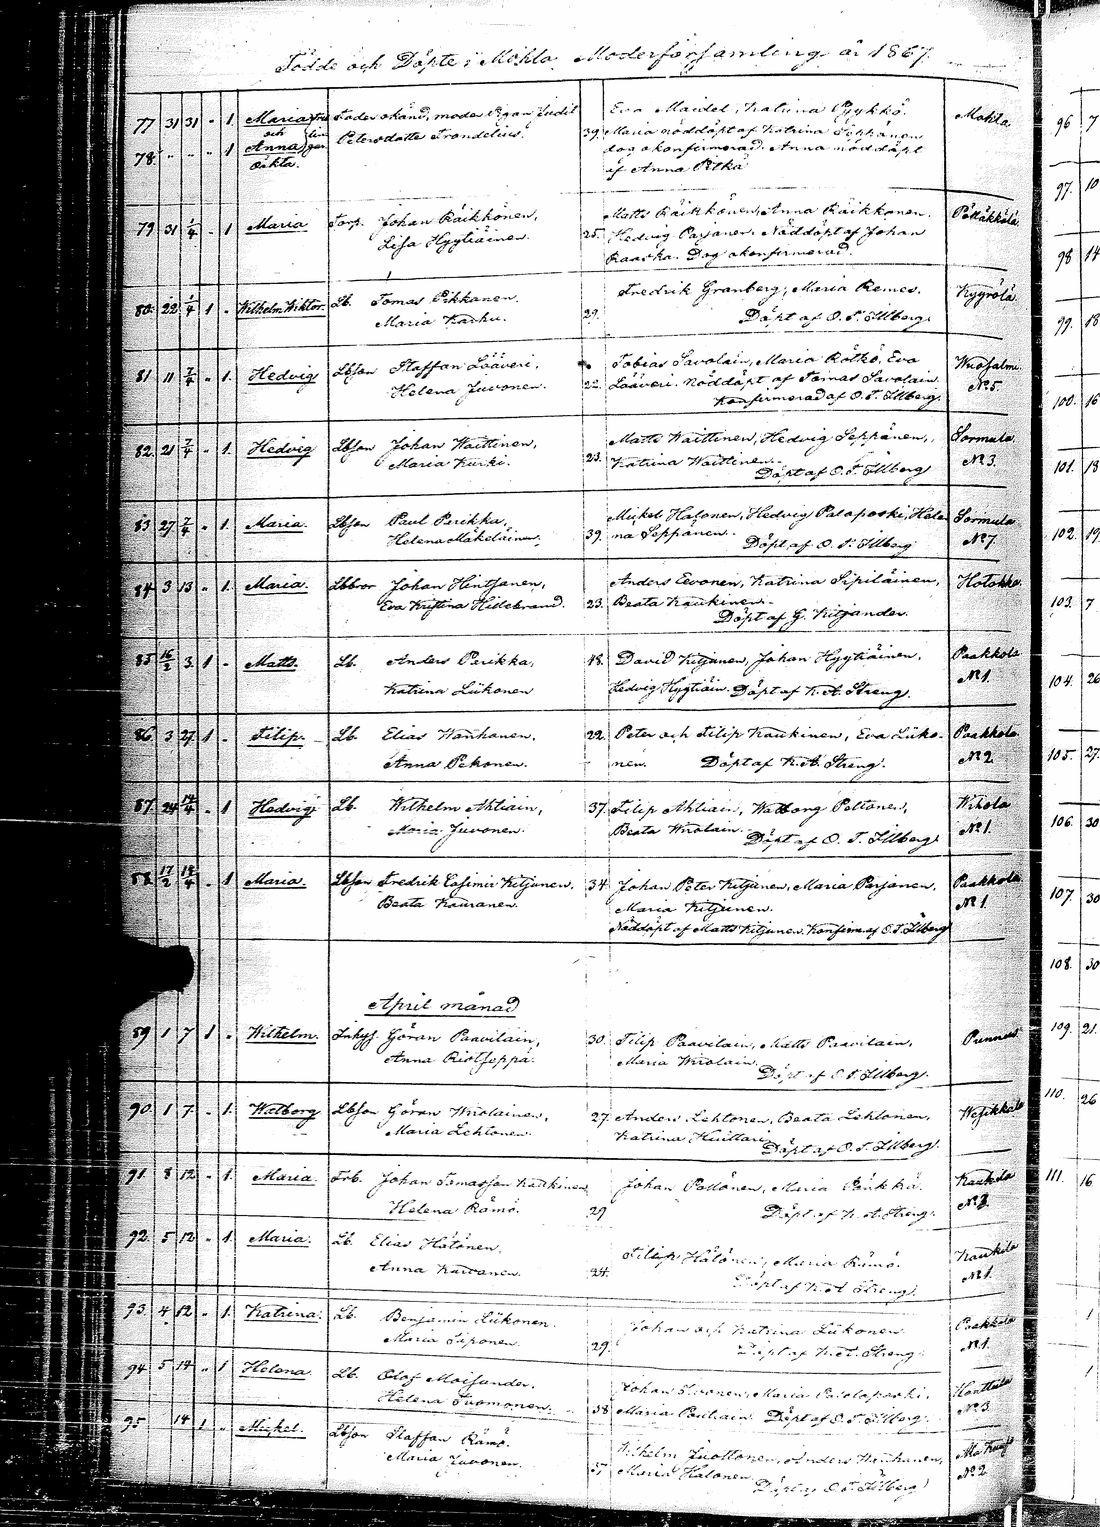 Födde och Döpte i Mohla Moderförsamling år 1867.
77 31 31 " 1 Maria Fader okänd, moder Pigan Judit Eva Maidel, Katrina Pyykkö. Mohla
och
78. " " " 1 Anna Petersdotter Frondelius. 39. Maria nöddöpt af Katrina
oäkta. dog okonfirmerad. Anna nöddöpt
af Anna Pitkä
79 31 1/4 " 1 Maria Torp. Johan Räikkönen, Matts Räikkönen, Anna Räikkönen. Pölläkkälä
Lisa Hyytiäinen. 25. Hedvig Parjanen. Nöddöpt af Johan
Kaaska. Dog okonfirmerad.
80. 22 1/4 1 " Wilhelm Wiktor. Lb. Tomas Pikkanen. Fredrik Granberg, Maria Remes. Kyyrölä
Maria Karhu. 29. Döpt af O. F. Illberg.
81 11 7/4 " 1. Hedvig Lbson Staffan Lääveri, Tobias Savolain, Maria Rötkö, Eva Wuosalmi
Helena Juvonen. 22. Lääveri. Nöddöpt af Tomas Savolain. No 5.
Konfirmerad af O. F. Illberg.
82. 21 7/4 " 1. Hedvig Lbson Johan Waittinen, Matts Waittinen, Hedvig Seppänen, Sormula
Maria Kurki. 23. Katrina Waittinen. No 3.
Döpt af O. F. Illberg
83 27 7/4 " 1. Maria. Lbson Paul Parikka, Mickel Halonen, Hedvig Palaposki, Hele Sormula
Helena Mäkeläinen. 39. na Seppänen. Döpt af O. F. Illberg No 7.
84 3 13 " 1. Maria. Lbbror Johan Hentsanen, Anders Eevonen, Katrina Sipiläinen, Hotokka
Eva Kristina Hildebrand. 23. Beata Kaukinen.
Döpt af G. Kiljander.
85 16/2 3. 1 " Matts. Lb. Anders Parikka, 48. David Kiljunen, Johan Hyytiäinen, Paakkola
Katrina Liikonen Hedvig Hyytiäin. Döpt af K. A. Streng. No 1.
86 3 27 1 " Filip. Lb. Elias Wanhanen, 22. Peter och Filip Kaukinen, Eva Liiko- Paakkola
Anna Pekonen. nen. Döpt af K. A. Streng. No 2
87. 24 14/4 " 1 Hedvig. Lb. Wilhelm Ahtiain, 37. Filip Ahtiain, Walborg Poltonen, Wihola
Maria Juvonen. Beata Wirolain. No 1.
Döpt af O. F. Illberg.
88. 17/2 14/4 " 1 Maria. Lbson Fredrik Casimir Kiljunen, 34. Johan Peter Kiljunen, Maria Parjanen, Paakkola
Beata Kauranen. Maria Kiljunen. No 1.
Nöddöpt af Matts Kiljunen. Konfirm. af O. F. Illberg
April månad
89 1 7 1 " Wilhelm. Inhys. Göran Paavilain, 30. Filip Paavilain, Matts Paavilain, Punnus
Anna Riolseppä. Maria Wirolain.
Döpt af O. F. Illberg.
90. 1 7. " 1. Walborg Lbson Göran Wirolainen, 27. Anders Lehtonen, Beata Lehtonen, Wesikkala
Maria Lehtonen. Katrina Huittari.
Döpt af O. F. Illberg.
91. 8 12 " 1. Maria. Trb. Johan Tomasson Kaukinen Johan Pöllönen, Maria Pänkkä. Kaukila
Helena Rämö. 29 Döpt af K. A. Streng. No 3.
92. 5 12 " 1. Maria. Lb. Elias Hätönen. Filip Hätönen, Maria Rämö. Kaukila
Anna Kurvanen. 24. Döpt af K. A. Streng. No 1.
93. 4 12 " 1. Katrina. Lb. Benjamin Liikonen. Johan och Katrina Liikonen Paakkola
Maria Siponen. 29. Döpt af K. A. Streng. No 1.
94 5 14 " 1 Helena Lb. Olof Moisander. Johan Ivonen, Maria Palaposki. Honttila
Helena Tuomonen. 38 Maria Pouliain. Döpt af O. F. Illberg. No 3
95 14 1 " Mickel. Lbson Staffan Rämö. Wilhelm Juottonen, Anders Wanhanen,
Maria Juvonen. Maria Halonen. No 2
Döpt af O. F. Illberg
96 7
97. 10
98 14
99. 18
100. 16
101. 18
102. 19.
103. 7
104. 26
105. 27.
106. 30
107. 30
108. 30
109. 21.
110. 26
111. 16